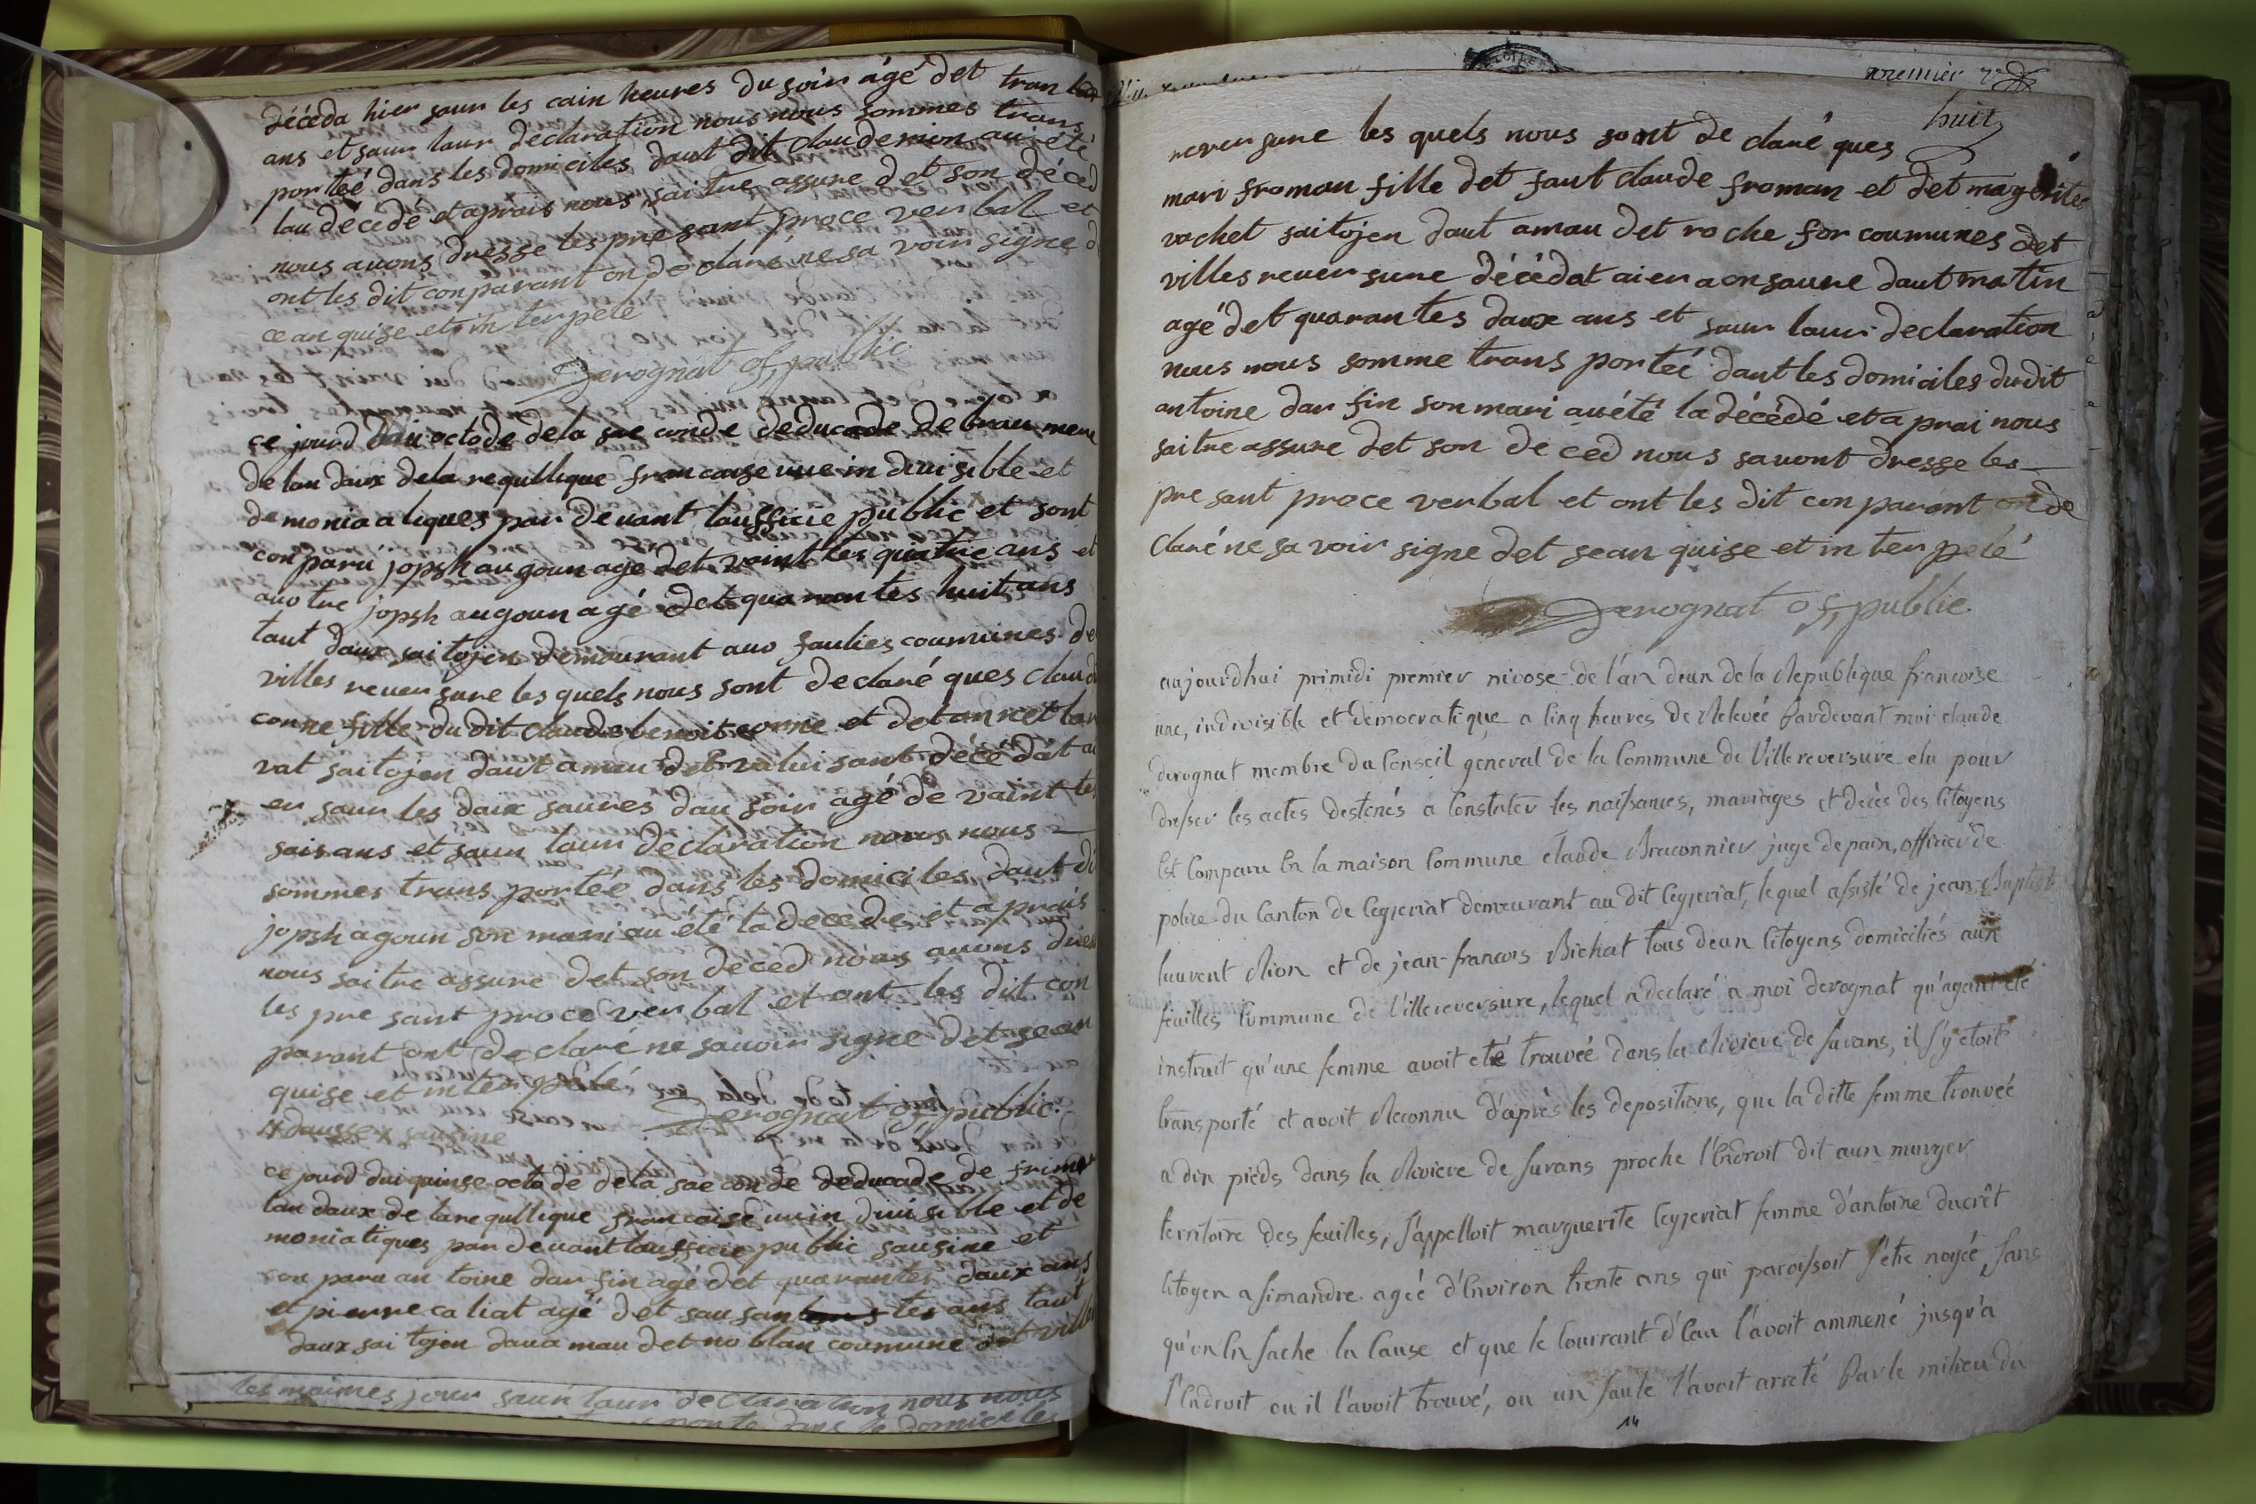 décéda hier saur les cain heures du soir agé det tran
ans et saur laur déclaration nous nous sommes trans
porteé dans les domiciles daut dit claude mion au été
lau décédé et aprais nous saitre assure det son déced
nous avons dresse les pre sant proce ver bal et
ont les dit conparant on de claré ne sa voir signe d
ce an quise et in ter pelé
Derognat of, public
ce jourd dui octode dela se conde deducade de brau mere
de lan daux dela requllique francaise une in divisible et
de monia a tiques par devant laufficie public et sont
con paru jopsh augoun agé det vaint tes quatre ans et
auo tre jopsh augoun agé det quarantes huit ans
taut daux saitojen demourant auo faulies coumunes de
villes rever sure les quels nous sont declaré ques claud
conne fille du dit claude benoit conne et det an net lar
vat saitojen daut amau det valui sant décédat ai
er saur les daux saures dau soir agé de vaint tes
sais ans et saur laur declaration nous nous
sommes trans portée dans les domiciles daut di
jopsh agoun son mari au été la decede et aprais
nous saitre assure det son déced nous avons dres
les pre sant proce ver bal et ont les dit con
parant ont de claré ne savoir signe det sean
quise et in ter pelé
Derognat of, public.
ce jourd dui quinse octo de dela sae conde deducade de frimer
lan daux de la requllique francaise un in divi sible et de
moniatiques par devant laufficie public sausine et
con paru an toine dau fin agé det quarantes daux ans
et pierre ca liat agé det sau san tes ans taut
daux sai tojen daua mau det no blan coumune det ville
les maimes jour saur laur declaration nous nous
premier
huit
rever sure les quels nous sont de claré ques
mari froman fille det faut claude froman et det margerite
vachet saitojen daut amau det roche for coumunes det
villes rever sure décédat aier a onsaure daut matin
agé det quarantes daux ans et saur laur declaration
nous nous somme trans porteé dant les domiciles du dit
antoine dau fin son mari au été la décédé et a prai nous
saitre assure det son de ced nous savont dresse les
pre sant proce verbal et ont les dit con parant on de
claré ne sa voir signe det sean quise et in ter pelé
Derognat of, public.
aujourdhui primidi premier nivose de l'an deux de la Republique francoise
une, indivisible et democratique a cinq heures de Relevée Pardevant moi claude
derognat membre du Conseil general de la Commune de Villereversure elu pour
dresser les actes destinés a Constater les naissances, mariages et decès des Citoyens
Est Comparu En la maison Commune claude Braconnier juge de paix, officier de
police du Canton de Ceyzeriat demeurant au dit Ceyzeriat, lequel assisté de jean-Baptiste
laurent Rion et de jean-francois Bichat tous deux Citoyens domiciliés aux
feuilles Commune de Villereversure, lequel a declaré a moi derognat qu'ayant été
instruit qu'une femme avoit eté trouvée dans la Riviere de surans, il s'y etoit
transporté et avoit Reconnu d'après les depositions, que la ditte femme trouvée
a dix pieds dans la Riviere de surans proche l'Endroit dit aux murger
territoire des feuilles, s'appelloit marguerite Ceyzeriat femme d'antoine ducrêt
Citoyen a simandre agée d'Environ trente ans qui paroissoit s'être noyée, sans
qu'on En sache la Cause et que le Courrant d'Eau l'avoit ammené jusqu'a
l'Endroit ou il l'avoit trouvé, ou un saule l'avoit arreté Par le milieu du
14